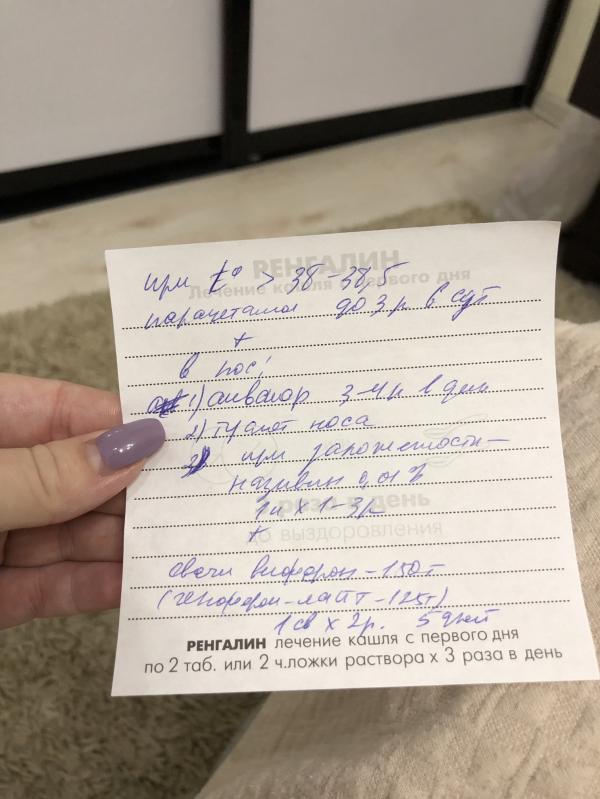 РЕНГАЛИН
Лечение кашля с первого дня
при t° > 38-38,5
парацетамол до 3 р в сут
+
в нос:
1) аквалор 3-4 р в день
2) туалет носа
при заложенности -
називин 0,01%
1 к х 1-3 р
раза в день
до выздоровления
+
свечи виферон - 150 т
(генферон-лайт - 125 т)
1 св х 2 р. 5 дней
РЕНГАЛИН лечение кашля с первого дня
по 2 таб. или 2 ч.ложки раствора х 3 раза в день